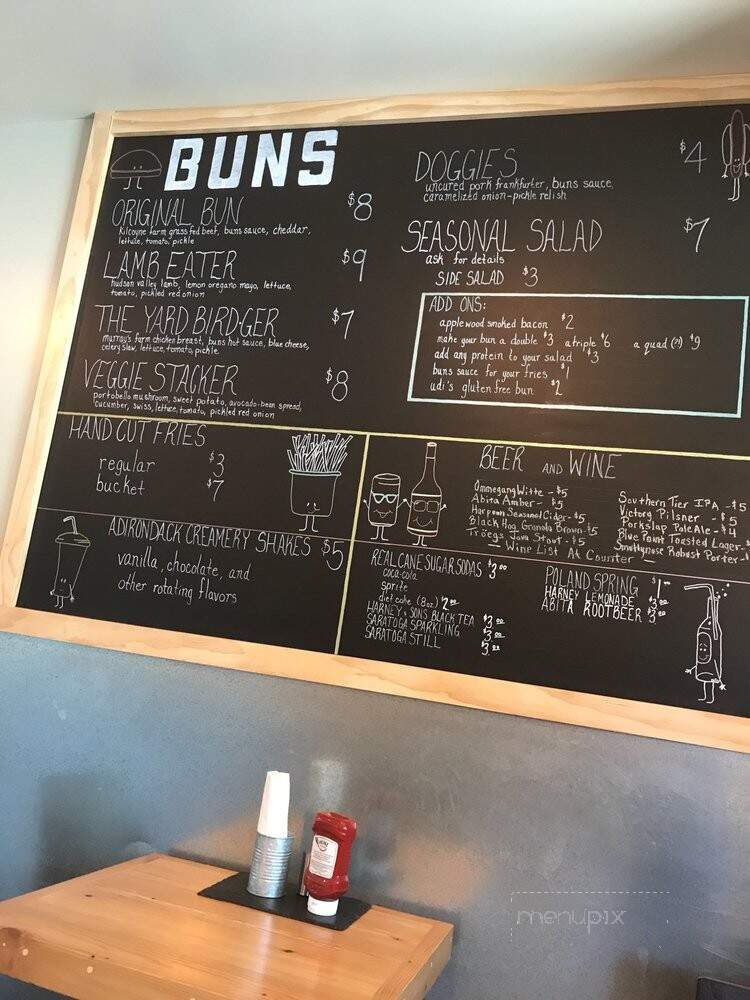 BUNS
ORIGINAL BUN $8
Kilcoyne farm grass fed beef, buns sauce, cheddar,
lettuce, tomato, pickle
LAMB EATER $9
hudson valley lamb, lemon oregano mayo, lettuce,
tomato, pickled red onion
THE YARD BIRDGER $7
murray's farm chicken breast, buns hot sauce, blue cheese,
celery slaw, lettuce, tomato, pickle.
VEGGIE STACKER $8
portobello mushroom, sweet potato, avocado-bean spread,
cucumber, swiss, lettuce, tomato, pickled red onion
DOGGIES $4
uncured pork frankfurter, buns sauce,
caramelized onion-pickle relish
SEASONAL SALAD $7
ask for details
SIDE SALAD $3
ADD ONS:
applewood smoked bacon $2
make your bun a double $3 a triple $6 a quad (?!) $9
add any protein to your salad $3
buns sauce for your fries $1
udi's gluten free bun $2
HAND CUT FRIES
regular $3
bucket $7
ADIRONDACK CREAMERY SHAKES $5
vanilla, chocolate, and
other rotating flavors
BEER AND WINE
Ommegang Witte - $5
Abita Amber - $5
Harpoon Seasonal Cider - $5
Black Hog Granola Brown - $5
Tröegs Java Stout - $5
Southern Tier IPA - $5
Victory Pilsner - $5
Porkslap Pale Ale - $4
Blue Point Toasted Lager -
Smuttynose Robust Porter -
Wine List At Counter
REAL CANE SUGAR SODAS $3.00
coca-cola
sprite
diet coke (8oz) $2.00
HARNEY & SONS BLACK TEA $3.00
SARATOGA SPARKLING $3.00
SARATOGA STILL $3.00
POLAND SPRING $1
HARNEY LEMONADE $3.00
ABITA ROOTBEER $3.00
HEINZ
menupix